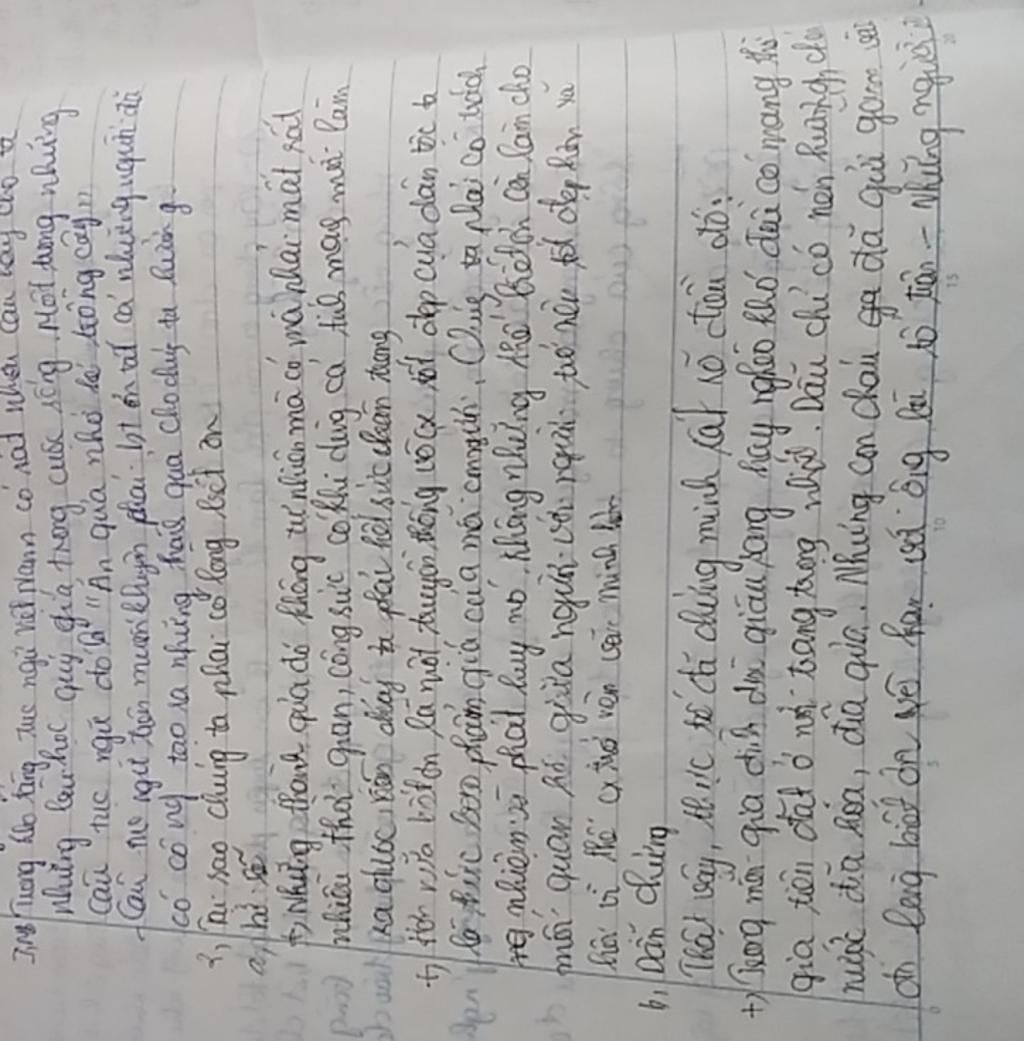 Trong kho tàng tục ngữ việt Nam có rất nhiều câu hay cho ta
những bài học quý giá trong cuộc sống. Một trong những
câu tục ngữ đó là "Ăn quả nhớ kẻ trồng cây"
- Câu tục ngữ trên muốn khuyên phải bt ơn tất cả những người đã
có công tạo ra những thành quả cho chúng ta hưởng
2, Tại sao chúng ta phải có lòng biết ơn
a,
+) Những thành quả đó không tự nhiên mà có mà phải mất rất
nhiều thời gian, công sức có khi dùng cả tính mạng mới làm
ra được vậy ta phải hết sức chân trọng
+) Hơn nữa biết ơn là một truyền thống vô cx tốt đẹp của dân tộc ta
là thức đo phẩm giá của mỗi con người. Chúng ta phải có trách
nhiệm và phát huy nó. không những thế biết ơn còn làm cho
mối quan hệ giữa người với người trở nên tốt đẹp hơn xã
hội vì thế cx trở nên văn minh hơn
b, Dẫn chứng
Thật vậy, thực tế đã chứng minh rất rõ điều đó:
+) Trong mỗi gia đình dù giàu sang hay nghèo khó đều có mang thờ
gia tiên đặt ở nơi trang trọng nhất. Dẫu chỉ có nén hương, chén
nước, đĩa hóa, đĩa quả. Những con cháu đã gửi gắm vào
đó lòng biết ơn vô hạn với ông bà tổ tiên - Những người